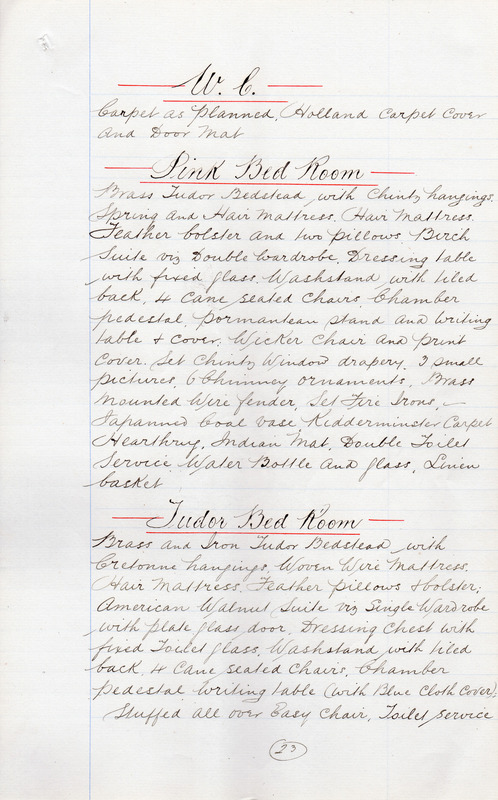 W. C.
Carpet as planned, Holland Carpet Cover
and Door Mat
Pink Bed Room
Brass Tudor Bedstead with Chintz hangings.
Spring and Hair Mattress. Hair Mattress.
Feather bolster and two pillows Birch
Suite viz Double Wardrobe, Dressing table
with fixed glass, Washstand with tiled
back, 4 Cane seated Chairs, Chamber
pedestal, pormanteau stand and writing
table & cover, Wicker Chair and print
cover. Set Chintz Window drapery. 3 small
pictures, 6 Chimney ornaments, Brass
Mounted Wire fender, Set Fire Irons, —
Japanned Coal vase Kidderminster Carpet
Hearthrug, Indian Mat, Double Toilet
Service Water Bottle and glass, Linen
basket
Tudor Bed Room
Brass and Iron Tudor Bedstead with
Cretonne hangings, Woven Wire Mattress.
Hair Mattress. Feather pillows & bolster;
American Walnut Suite viz Single Wardrobe
with plate glass door, Dressing Chest with
fixed Toilet glass, Washstand with tiled
back, 4 Cane seated Chairs, Chamber
pedestal writing table (with Blue Cloth Cover);
Stuffed all over Easy Chair, Toilet service
23